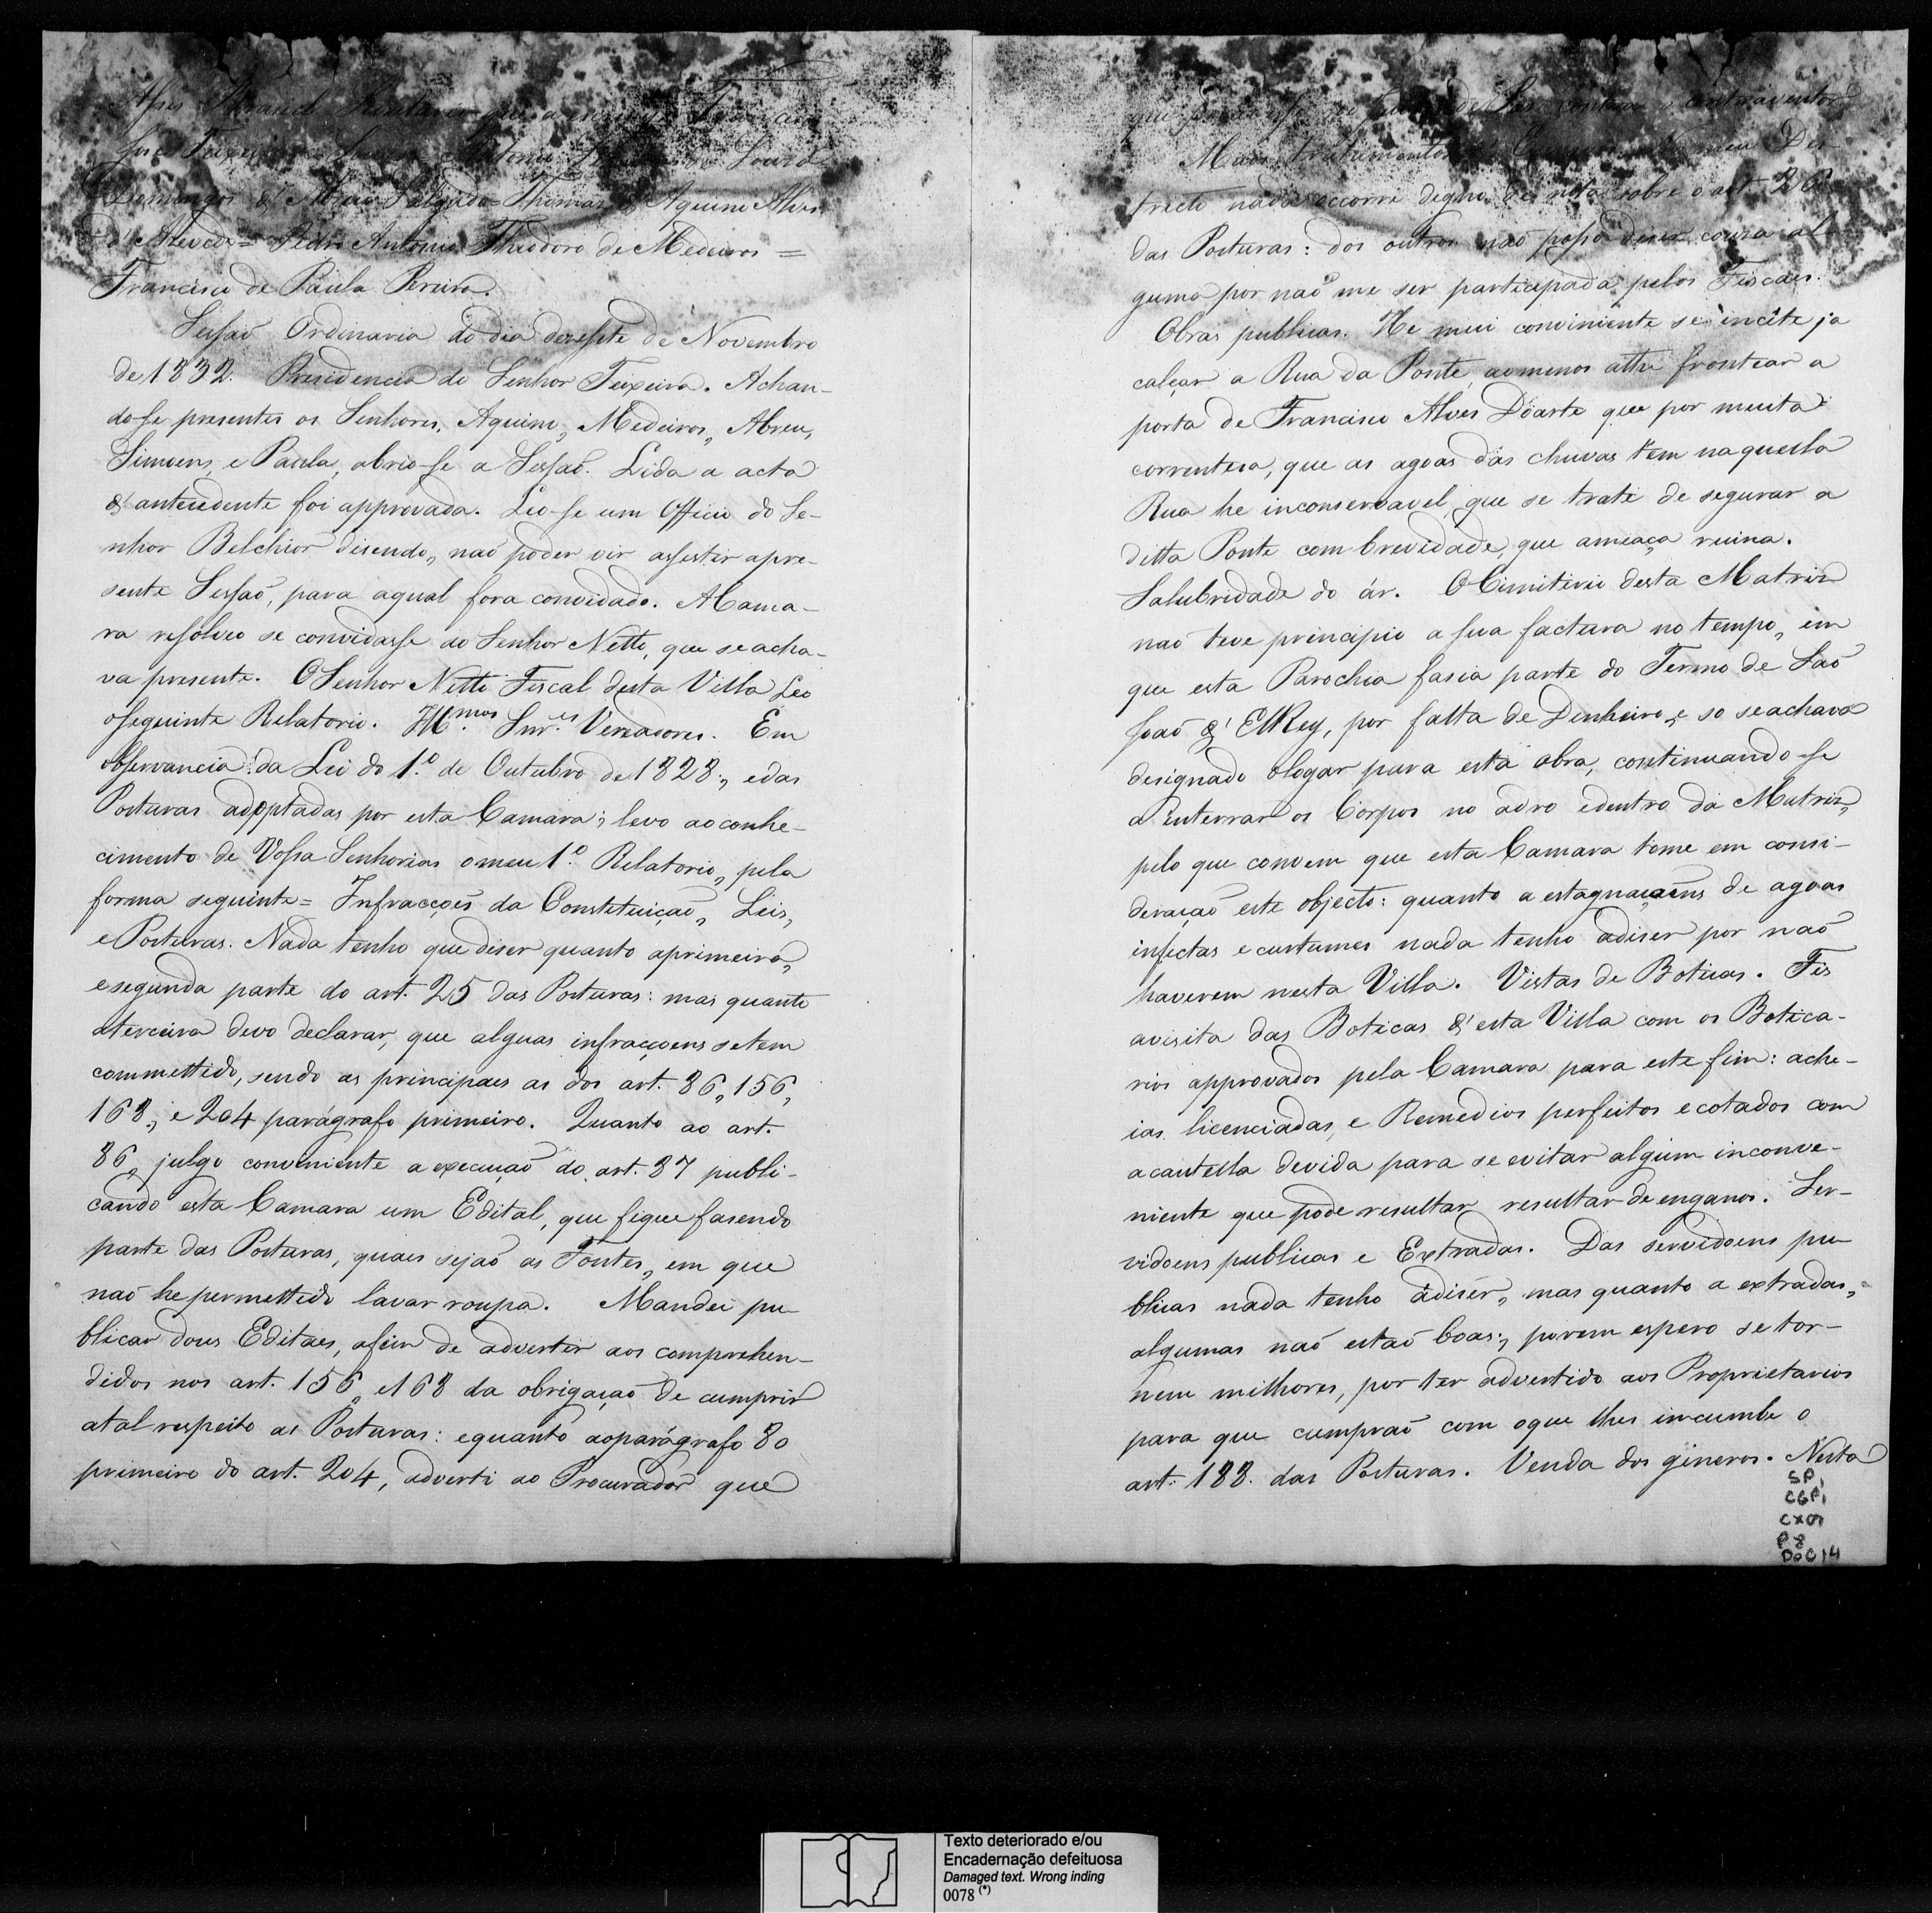 Manoel que
José Teixeira Antonio de Souza
Domingos d' Abreu Salgado = Thomas d' Aquino Alves
d' Azevedo = Pedro Antonio Theodoro de Medeiros =
Francisco de Paula Pereira.
Sessaõ Ordinaria do dia desesete de Novembro
de 1832. Presidencia do Senhor Teixeira. Achan-
do-se presentes os Senhores, Aquino, Medeiros, Abreu,
Simoens, e Paula, abrio-se a Sessaõ. Lida a acta
d' antecedente foi approvada. Leo-se um Officio do Se-
nhor Belchior disendo, naõ poder vir assestir apre-
sente Sessaõ, para aqual fora convidado. A Cama-
ra resolveo se convidasse ao Senhor Netto, que se acha-
va presente. O Senhor Netto Fiscal desta Villa Leo
oseguinte Relatorio. Ill.mos Snr.es Vereadores. Em
observancia da Lei do 1.º de Outubro de 1828, edas
Posturas adoptadas por esta Camara; levo ao conhe-
cimento de Vossa Senhorias o meu 1.º Relatorio, pela
forma seguinte = Infracçoẽs da Constetuiçaõ, Leis,
e Posturas. Nada tenho que diser quanto aprimeira,
esegunda parte do art. 25 das Posturas: mas quanto
aterceira devo declarar, que alguas infracçoens setem
commettido, sendo as principaes as dos art. 86, 156,
168, e 204 parágrafo primeiro. Quanto ao art.
86, julgo conveniente a execuçaõ do art. 87 publi-
cando esta Camara um Edital, que fique fasendo
parte das Posturas, quaes sejaõ as Fontes, em que
naõ he permettido lavar roupa. Mandei pu-
blicar dous Editaes, afim de advertir aos comprehen-
didos nos art. 156, e 168 da obrigaçaõ de cumprir
atal respeito as Posturas: equanto aoparágrafo 80
primeiro do art. 204, adverti ao Procurador que
que de Paz contra o contraventor
Maos tratamentos meu Des-
trecto nada occorre digno de nota sobre o art. 26
das Posturas: dos outros naõ posso diser cousa al
guma por naõ me ser participada pelos Fiscaes.
Obras publicas. He mui conviniente se incite ja
calçar a Rua da Ponte, aomenos athe frontear a
porta de Francisco Alves Doarte que por muita
correntesa, que as agoas das chuvas tem naquella
Rua he inconservavel, que se trate de segurar a
ditta Ponte com brevidade, que ameaça ruina.
Salubridade do ár. O Cimiterio desta Matriz
naõ teve principio a sua factura no tempo, em
que esta Parochia fasia parte do Termo de Saõ
Joaõ d' ElRey, por falta de Dinheiro, e so seachava
designado ologar para esta obra, continuando-se
a enterrar os Corpos no adro edentro da Matriz,
pelo que convem que esta Camara tome em consi-
deraçaõ este objecto: quanto a estagnaçoens de agoas
infectas e curtumes nada tenho adiser por naõ
haverem nesta Villa. Vistas de Boticas. Fis
avisita das Boticas d' esta Villa com os Botica-
rios approvados pela Camara para este fim: ache-
ias licenciadas, e Remedios perfeitos e cotados com
acautella devida para se evitar algum inconve-
niente que pode resultar resultar de enganos. Ser-
vidoens publicas e Extradas. Das servidoens pu
blicas nada tenho adiser, mas quanto a extradas,
algumas naõ estaõ boas; porem espero se tor-
nem milhores, por ter advertido aos Proprietarios
para que cumpraõ com oque lhes incumbe o
art. 188. das Posturas. Venda dos gineros. Nesta
SP,
CGP,
CX01
P8
DOC 14
Texto deteriorado e/ou
Encadernação defeituosa
Damaged text. Wrong inding
0078 (*)